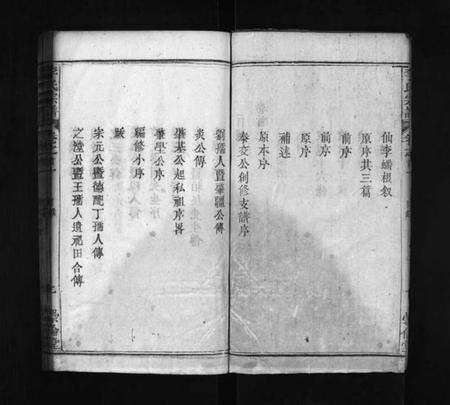 仙李蟠根叙
原序其三篇
前序
前序
原序
補述
原本序
奉文公創修支譜序
劉孺人暨肇疆公傳
炎公傳
肇基公起私祖序畧
肇學公序
編修小序
跋
宋元公暨德配丁孺人傳
之澧公暨王孺人遺祀田合傳